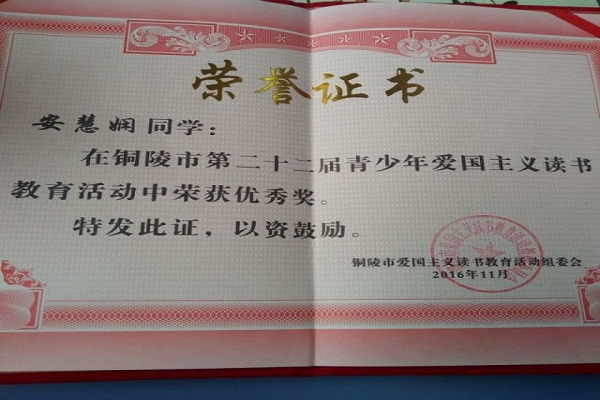 荣誉证书
安慧娴同学：
在铜陵市第二十二届青少年爱国主义读书
教育活动中荣获优秀奖。
特发此证，以资鼓励。
铜陵市爱国主义读书教育活动组委会
2016年11月